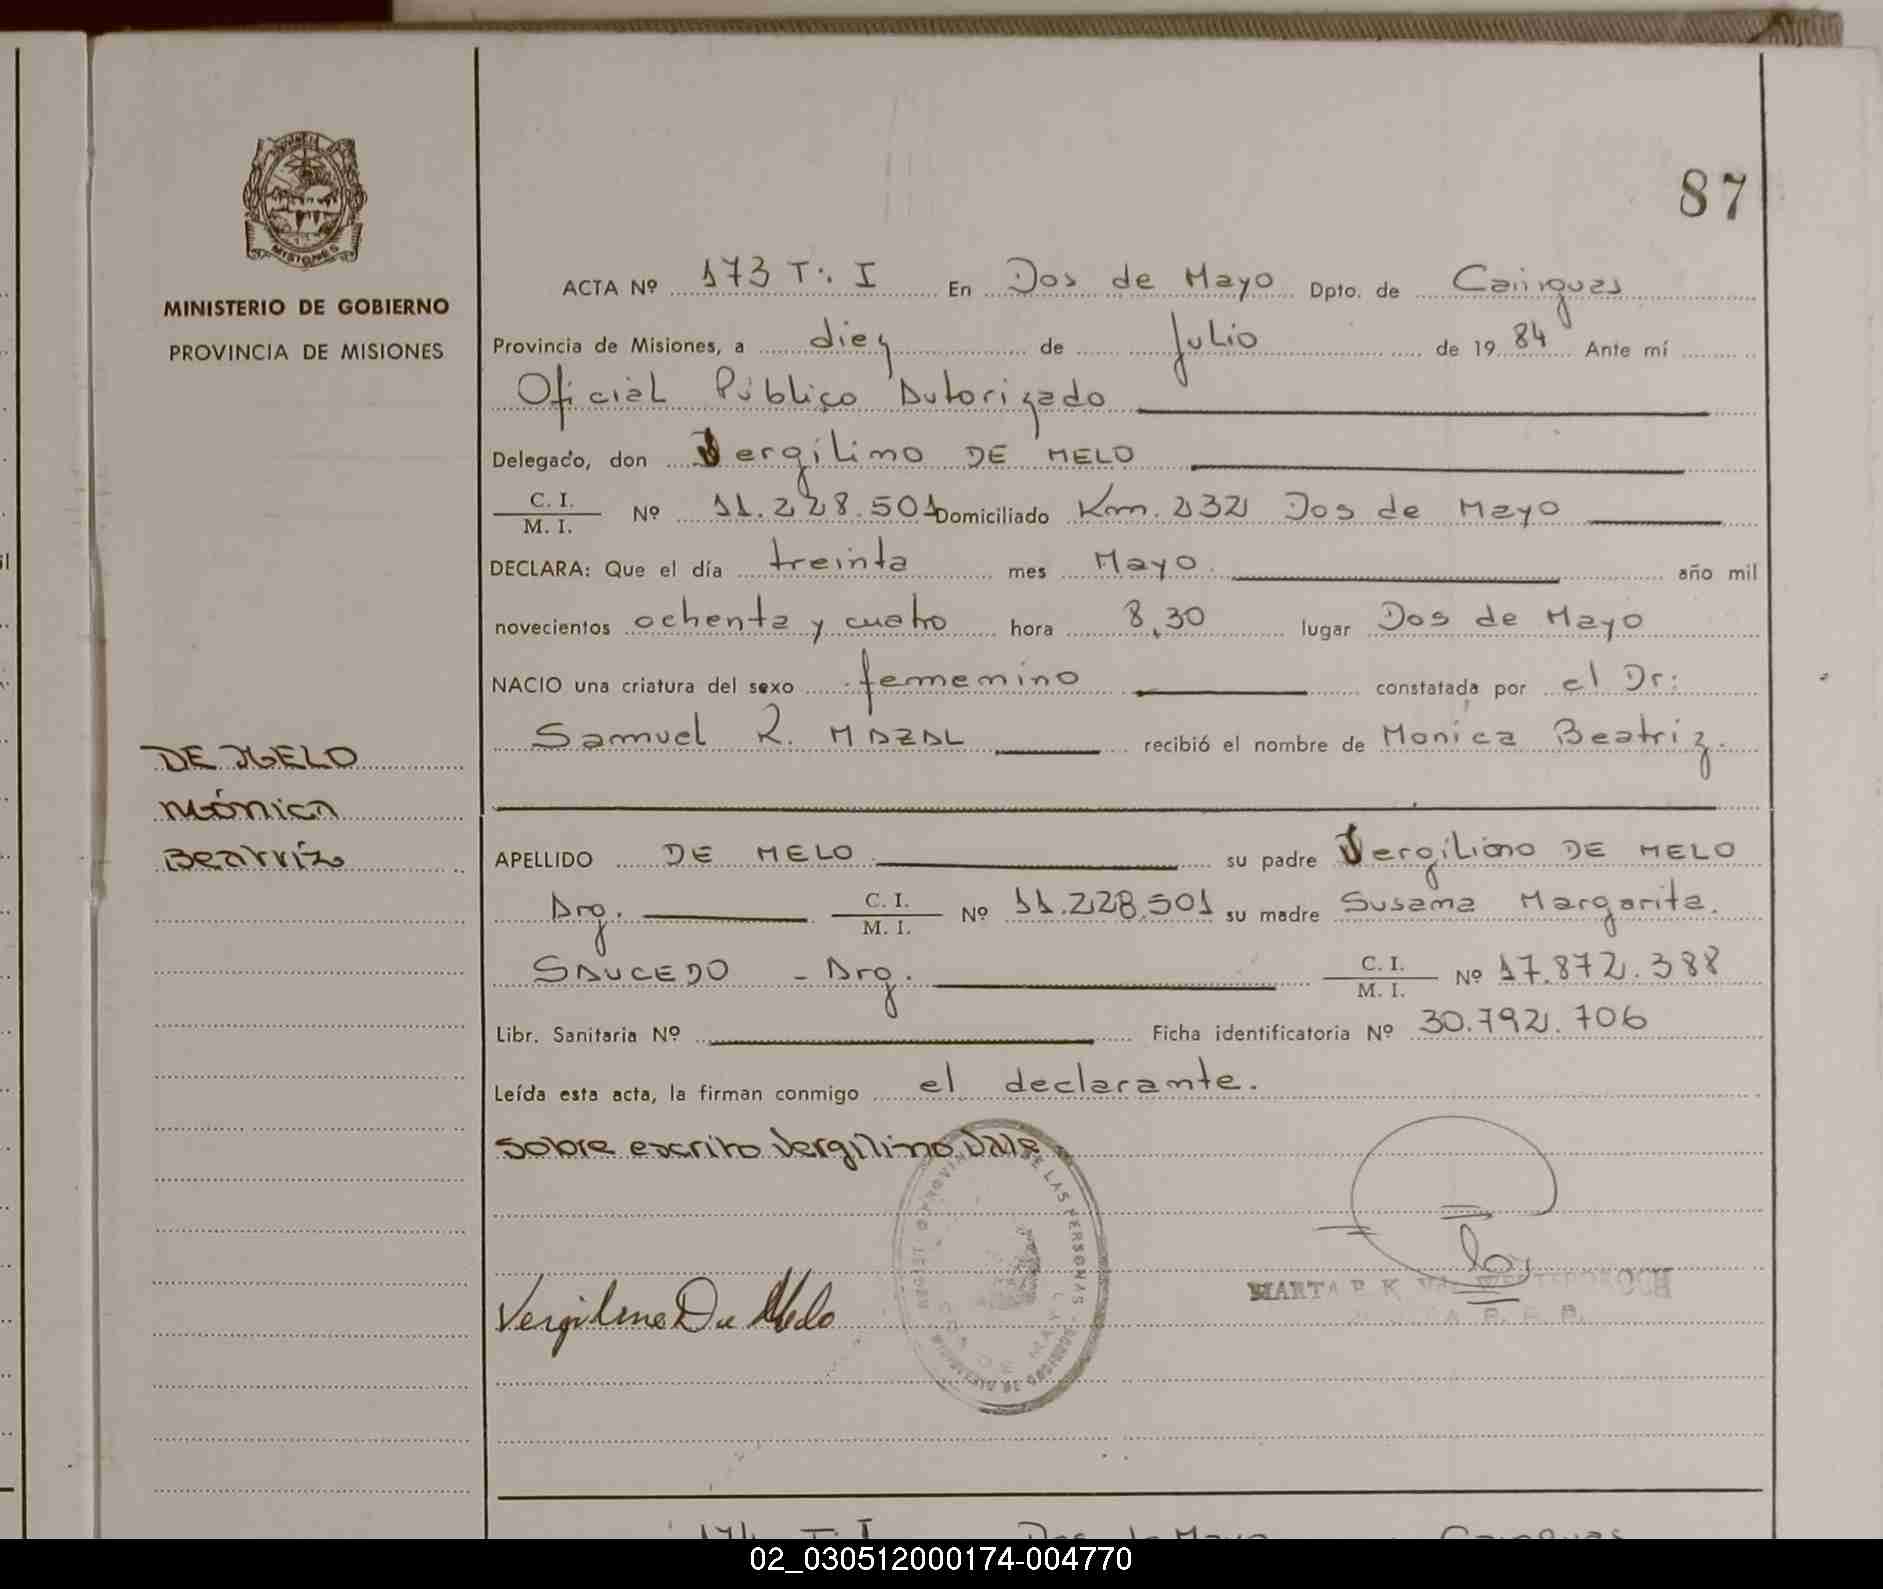 87
MISIONES
MINISTERIO DE GOBIERNO
PROVINCIA DE MISIONES
DE MELO
Mónica
Beatriz
ACTA Nº 173 T: I En Dos de Mayo Dpto. de Cainguas
Provincia de Misiones, a diez de Julio de 19 84 Ante mí
Oficial Público Autorizado
Delegado, don Vergilino DE MELO
C. I. / M. I. Nº 11.228.501 Domiciliado Km. 232 Dos de Mayo
DECLARA: Que el día treinta mes Mayo. año mil
novecientos ochenta y cuatro hora 8,30 lugar Dos de Mayo
NACIO una criatura del sexo femenino constatada por el Dr:
Samuel R. MAZAL recibió el nombre de Monica Beatriz.
APELLIDO DE MELO su padre Vergilino DE MELO
Arg. C. I. / M. I. Nº 11.228.501 su madre Susana Margarita.
SAUCEDO - Arg. C. I. / M. I. Nº 17.872.388
Libr. Sanitaria Nº Ficha identificatoria Nº 30.792.706
Leída esta acta, la firman conmigo el declarante.
Sobre escrito Vergilino Vale
DE LAS PERSONAS
Vergilino De Melo
MARTA
174 T. I Dos de Mayo Cainguas
02_030512000174-004770